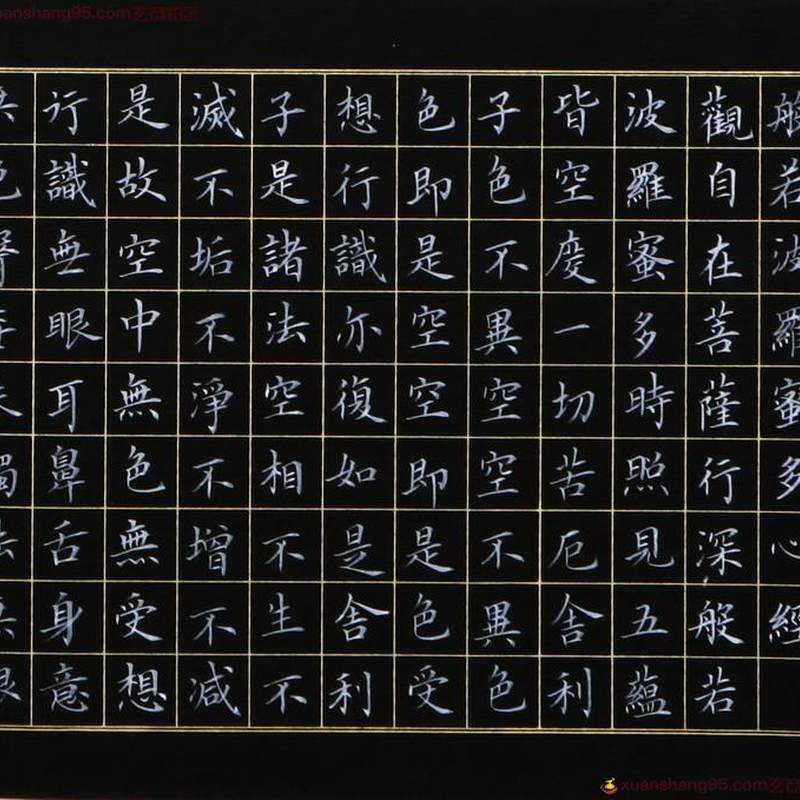 般若波羅蜜多心經
觀自在菩薩行深般若
波羅蜜多時照見五蘊
皆空度一切苦厄舍利
子色不異空空不異色
色即是空空即是色受
想行識亦復如是舍利
子是諸法空相不生不
滅不垢不淨不增不減
是故空中無色無受想
行識無眼耳鼻舌身意
無色聲香味觸法無眼
xuanshang95.com